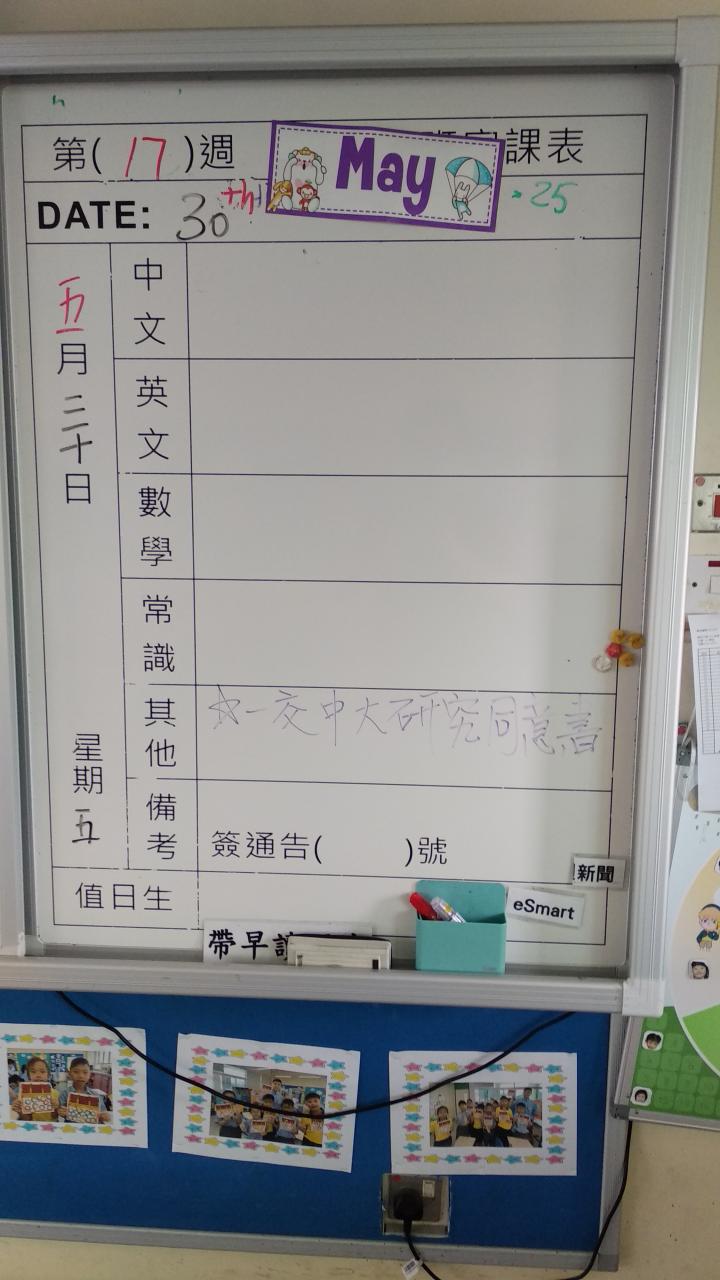 第( 17 )週
課表
May
DATE: 30th
25
五月三十日
星期五
中文
英文
數學
常識
其他
☆一交中大研究同意書
備考
簽通告( )號
值日生
新聞
eSmart
帶早